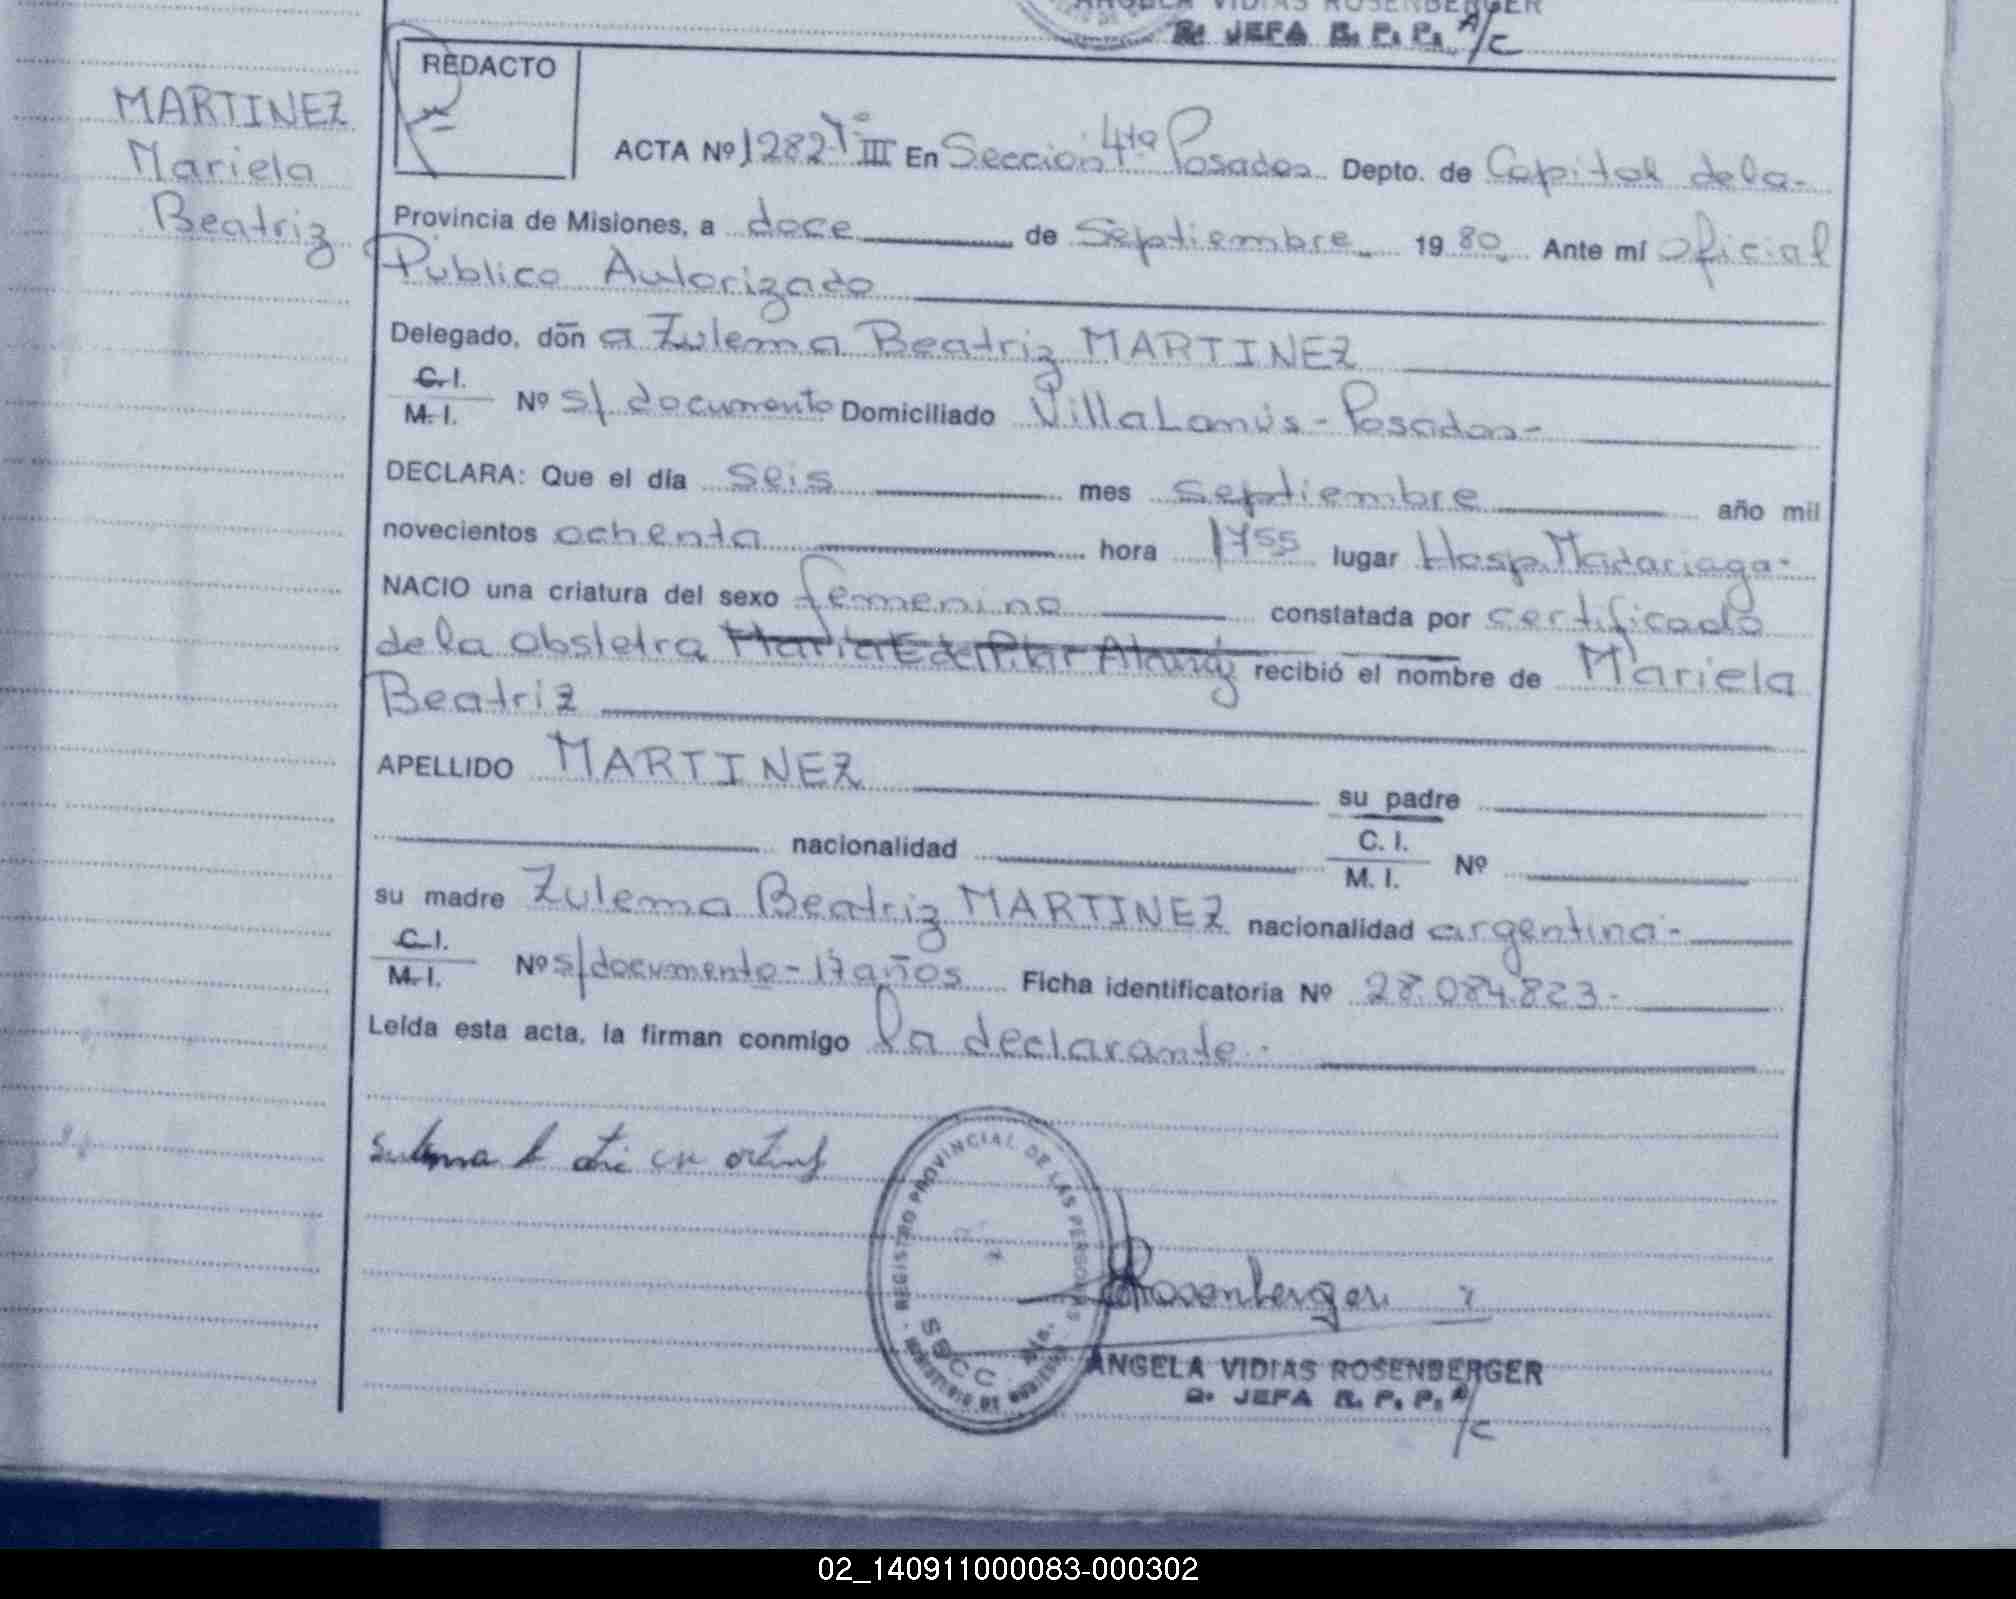 ANGELA VIDIAS ROSENBERGER
2º JEFA R. P. P. A/C
REDACTO
MARTINEZ
Mariela
Beatriz
ACTA Nº 1282 Tº III En Seccion 4ta Posadas Depto. de Capital de la-
Provincia de Misiones, a doce de Septiembre 19 80. Ante mí Oficial
Público Autorizado
Delegado, don a Zulema Beatriz MARTINEZ
C. I.
M. I. Nº s/ documento Domiciliado Villa Lanús - Posadas-
DECLARA: Que el día seis mes septiembre año mil
novecientos ochenta hora 1755 lugar Hosp. Madariaga-
NACIO una criatura del sexo femenino constatada por certificado
de la obstetra recibió el nombre de Mariela
Beatriz
APELLIDO MARTINEZ su padre
nacionalidad C. I.
M. I. Nº
su madre Zulema Beatriz MARTINEZ nacionalidad argentina-
C. I.
M. I. Nº s/documento - 17 años Ficha identificatoria Nº 28.084.823-
Leída esta acta, la firman conmigo la declarante.
REGISTRO PROVINCIAL DE LAS PERSONAS
MINISTERIO DE GOBIERNO
Rosenberger
ANGELA VIDIAS ROSENBERGER
2º JEFA R. P. P. A/C
02_140911000083-000302